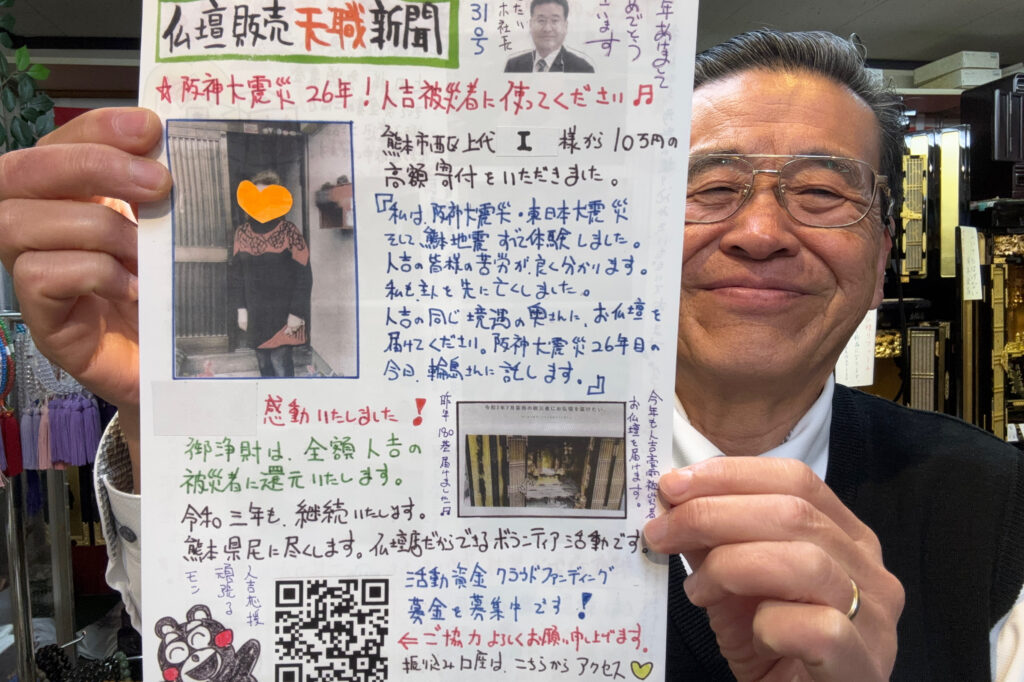 仏壇販売天職新聞
315号
社長
年あけまして
めでとう
ざいます
☆阪神大震災26年！人吉被災者に使ってください♬
熊本市西区上代 I 様から10万円の
高額寄付をいただきました。
『私は、阪神大震災・東日本大震災
そして、熊本地震すべて体験しました。
人吉の皆様の苦労が、良く分かります。
私も主人を先に亡くしました。
人吉の同じ境遇の奥さんに、お仏壇を
届けてください。阪神大震災26年目の
今日、輪島さんに託します。』
感動いたしました！
御浄財は、全額人吉の
被災者に還元いたします。
昨年180基届けました♬
令和2年7月豪雨の被災者にお仏壇を届けたい。
今年も人吉豪雨被災者
お仏壇を届けます。
令和三年も、継続いたします。
熊本県民に尽くします。仏壇店だからできるボランティア活動です。
人吉応援
頑張る
モン
活動資金クラウドファンディング
募金を募集中です！
⇐ご協力よろしくお願い申し上げます。
振り込み口座は、こちらからアクセス♡